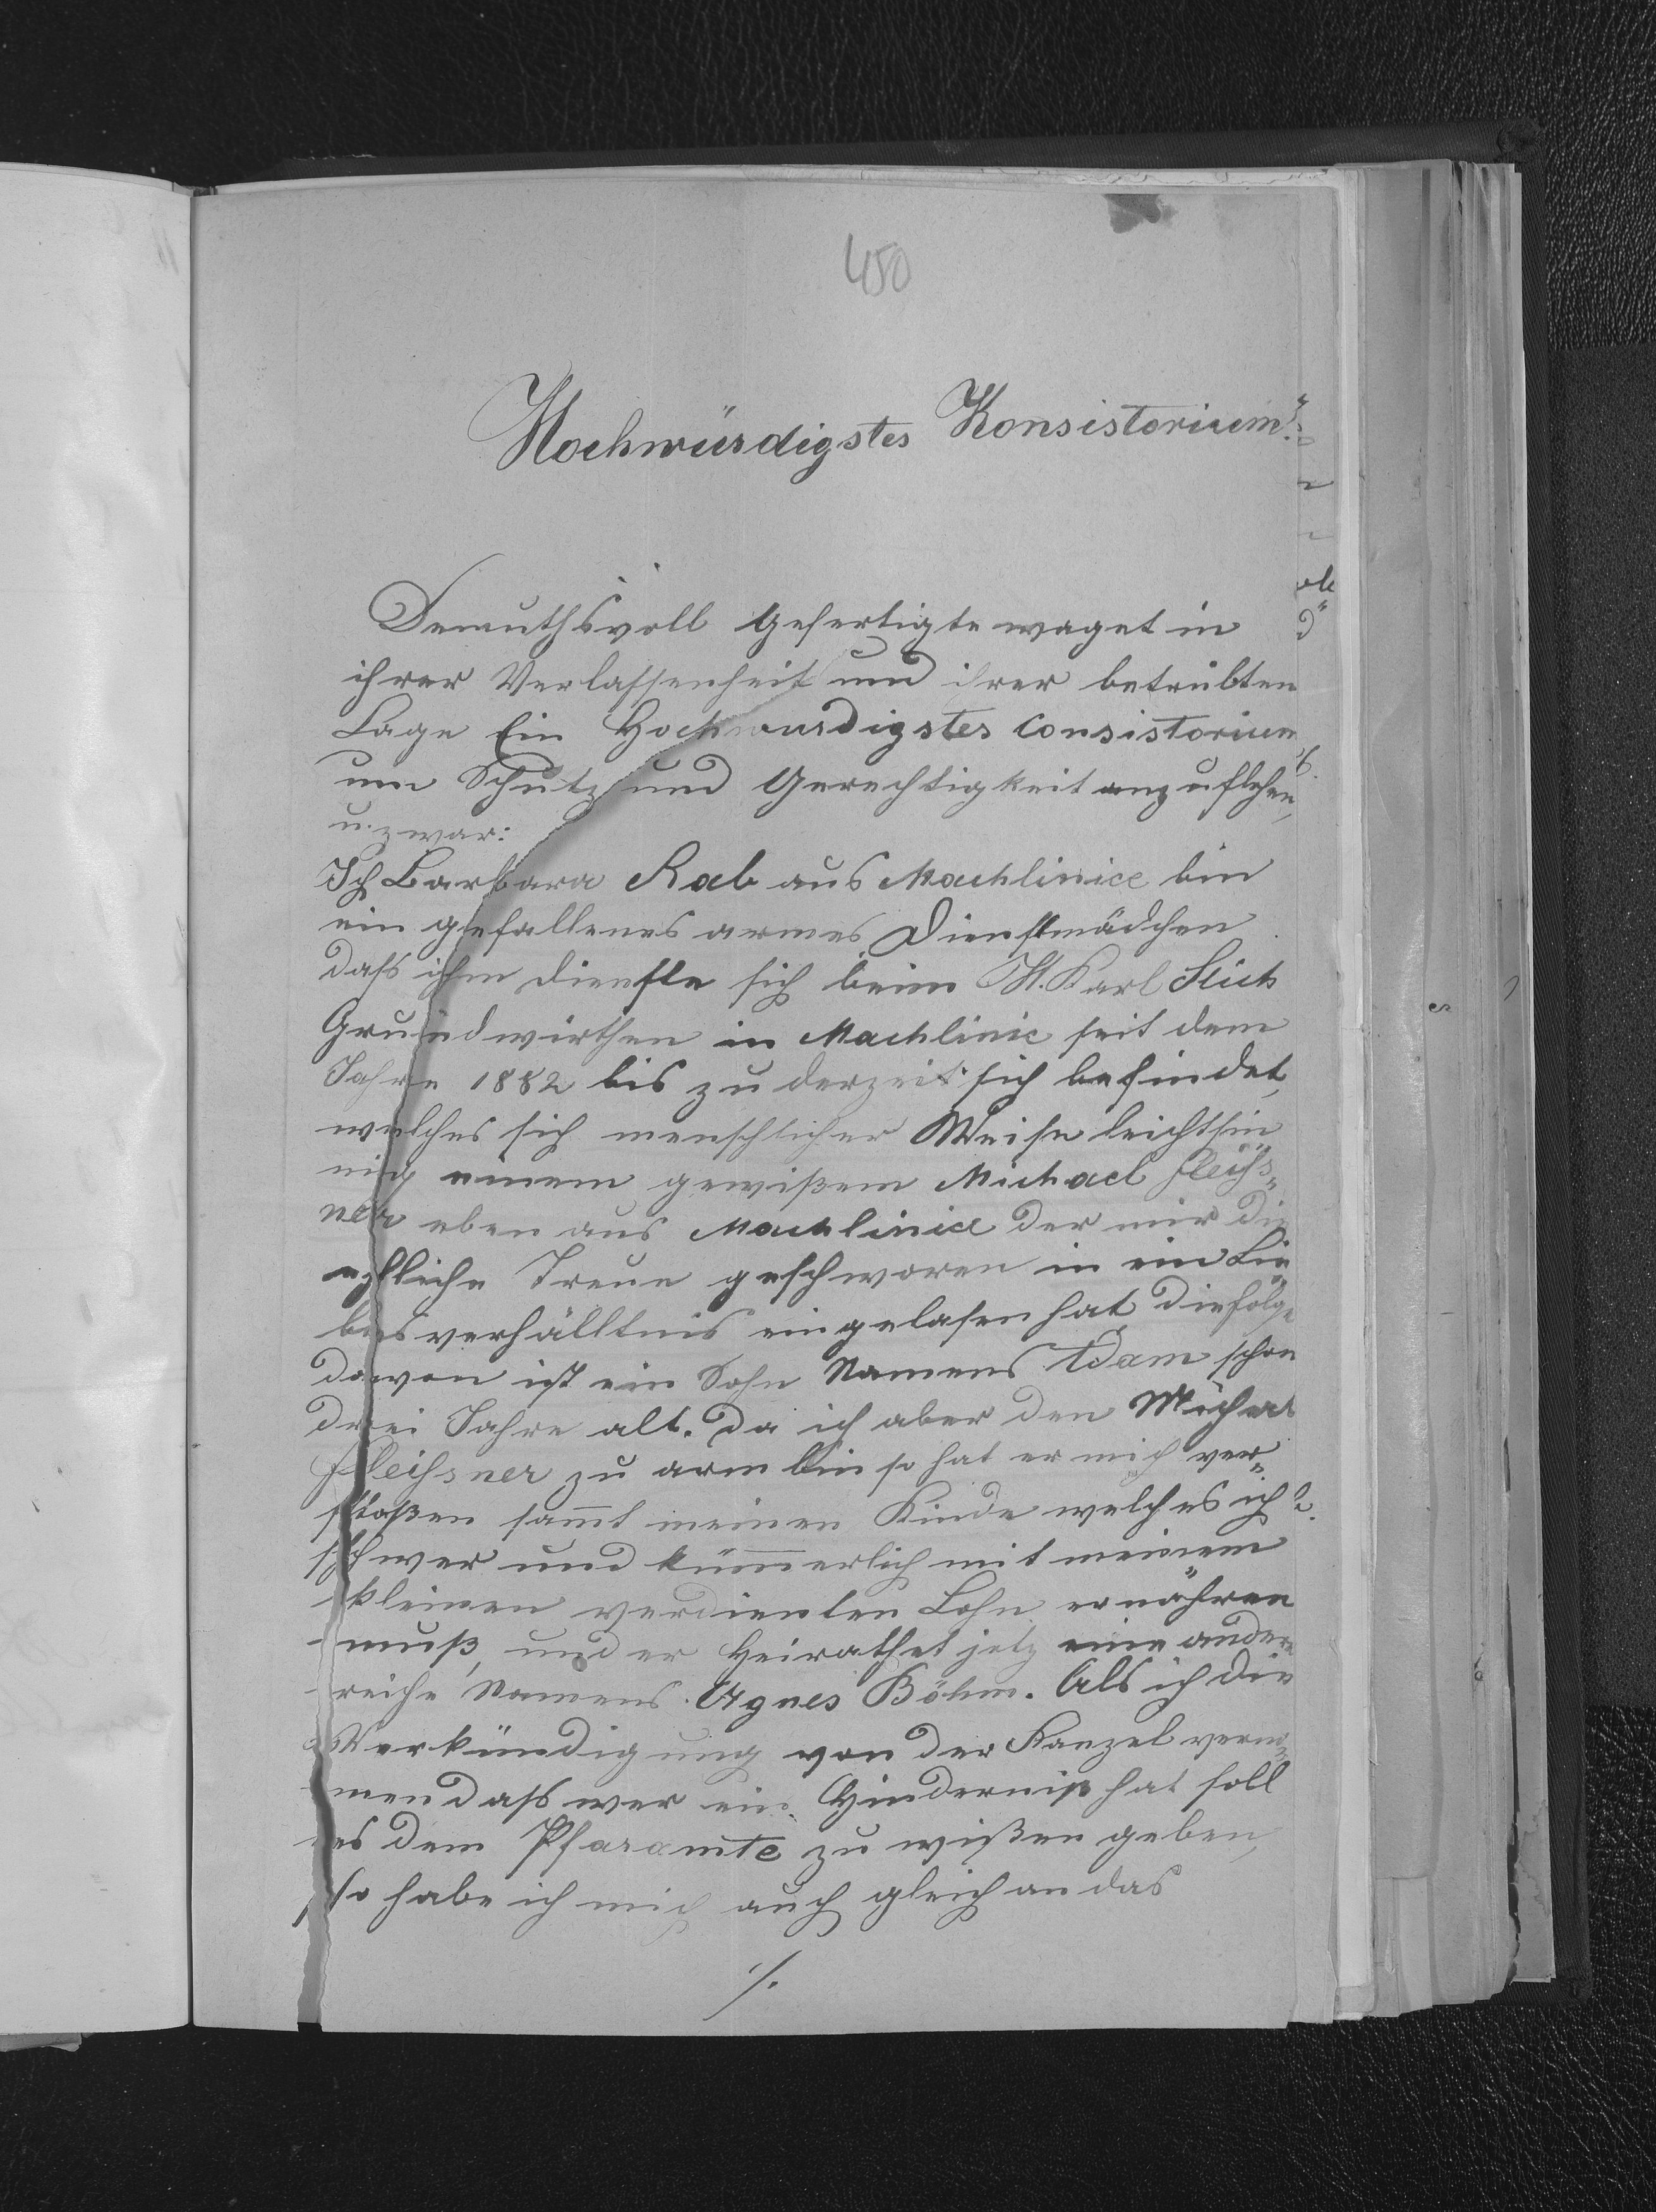 450
Hochwürdigstes Konsistorium!
Demuthsvoll Gefertigte waget in
ihrer Verlassenheit und ihrer betrübten
Lage Ein Hochwurdigstes Consistorium
um Schutz und Gerechtigkeit anzuflehen,
u. zwar:
Ich Barbara Rab aus Machlinice bin
ein gefallenes armes Dienstmädchen
dass ihm Dienste sich beim H. Karl
Grundwirthen in Machlinic seit dem
Jahre 1882 bis zu derzeit sich befindet,
welches sich menschlicher Weise leichtsin
nig einem gewißem Michael Fleiss-
ner eben aus Machlinice der mir die
ehliche Treue geschworen in ein Lie
besverhälltnis eingelasen hat die folge
davon ist ein Sohn Namens Adam schon
drei Jahre alt. Da ich aber den Michael
Fleissner zu arm bin so hat er mich ver-
stoßen sammt meinen Kinde welches ich
schwer und kümmerlich mit meinem
kleinen verdienten Lohn ernähren
muß, und er Heirathet jetz eine andere
reiche Namens Agnes Böhm. Als ich die
Verkündigung von der Kanzel verno-
men dass wer ein Hinderniß hat soll
es dem Pfaramte zu wißen geben,
so habe ich mich auch gleich an das
./.